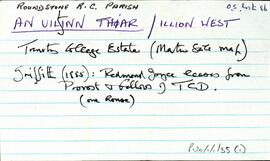 ROUNDSTONE R.C. PARISH
O.S. Sheet
AN UILINN THOAR / ILLION WEST
Trinity College Estate (Martin Sale map)
Griffith (1855): Redmond Joyce leases from
Provost & Fellows of TCD.
(one house)